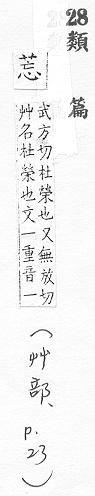 28類篇
莣
武方切杜榮也又無放切
艸名杜榮也文一重音一
(艸部、p.23)